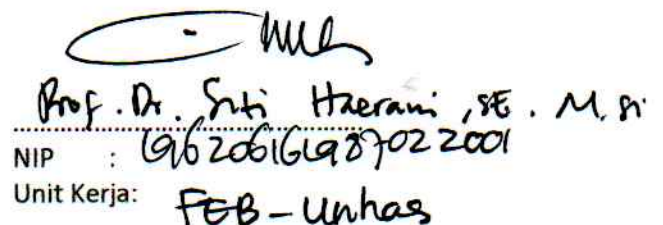 Prof. Dr. Siti Haerani, SE. M.si
NIP : 196206161987022001
Unit Kerja: FEB-Unhas